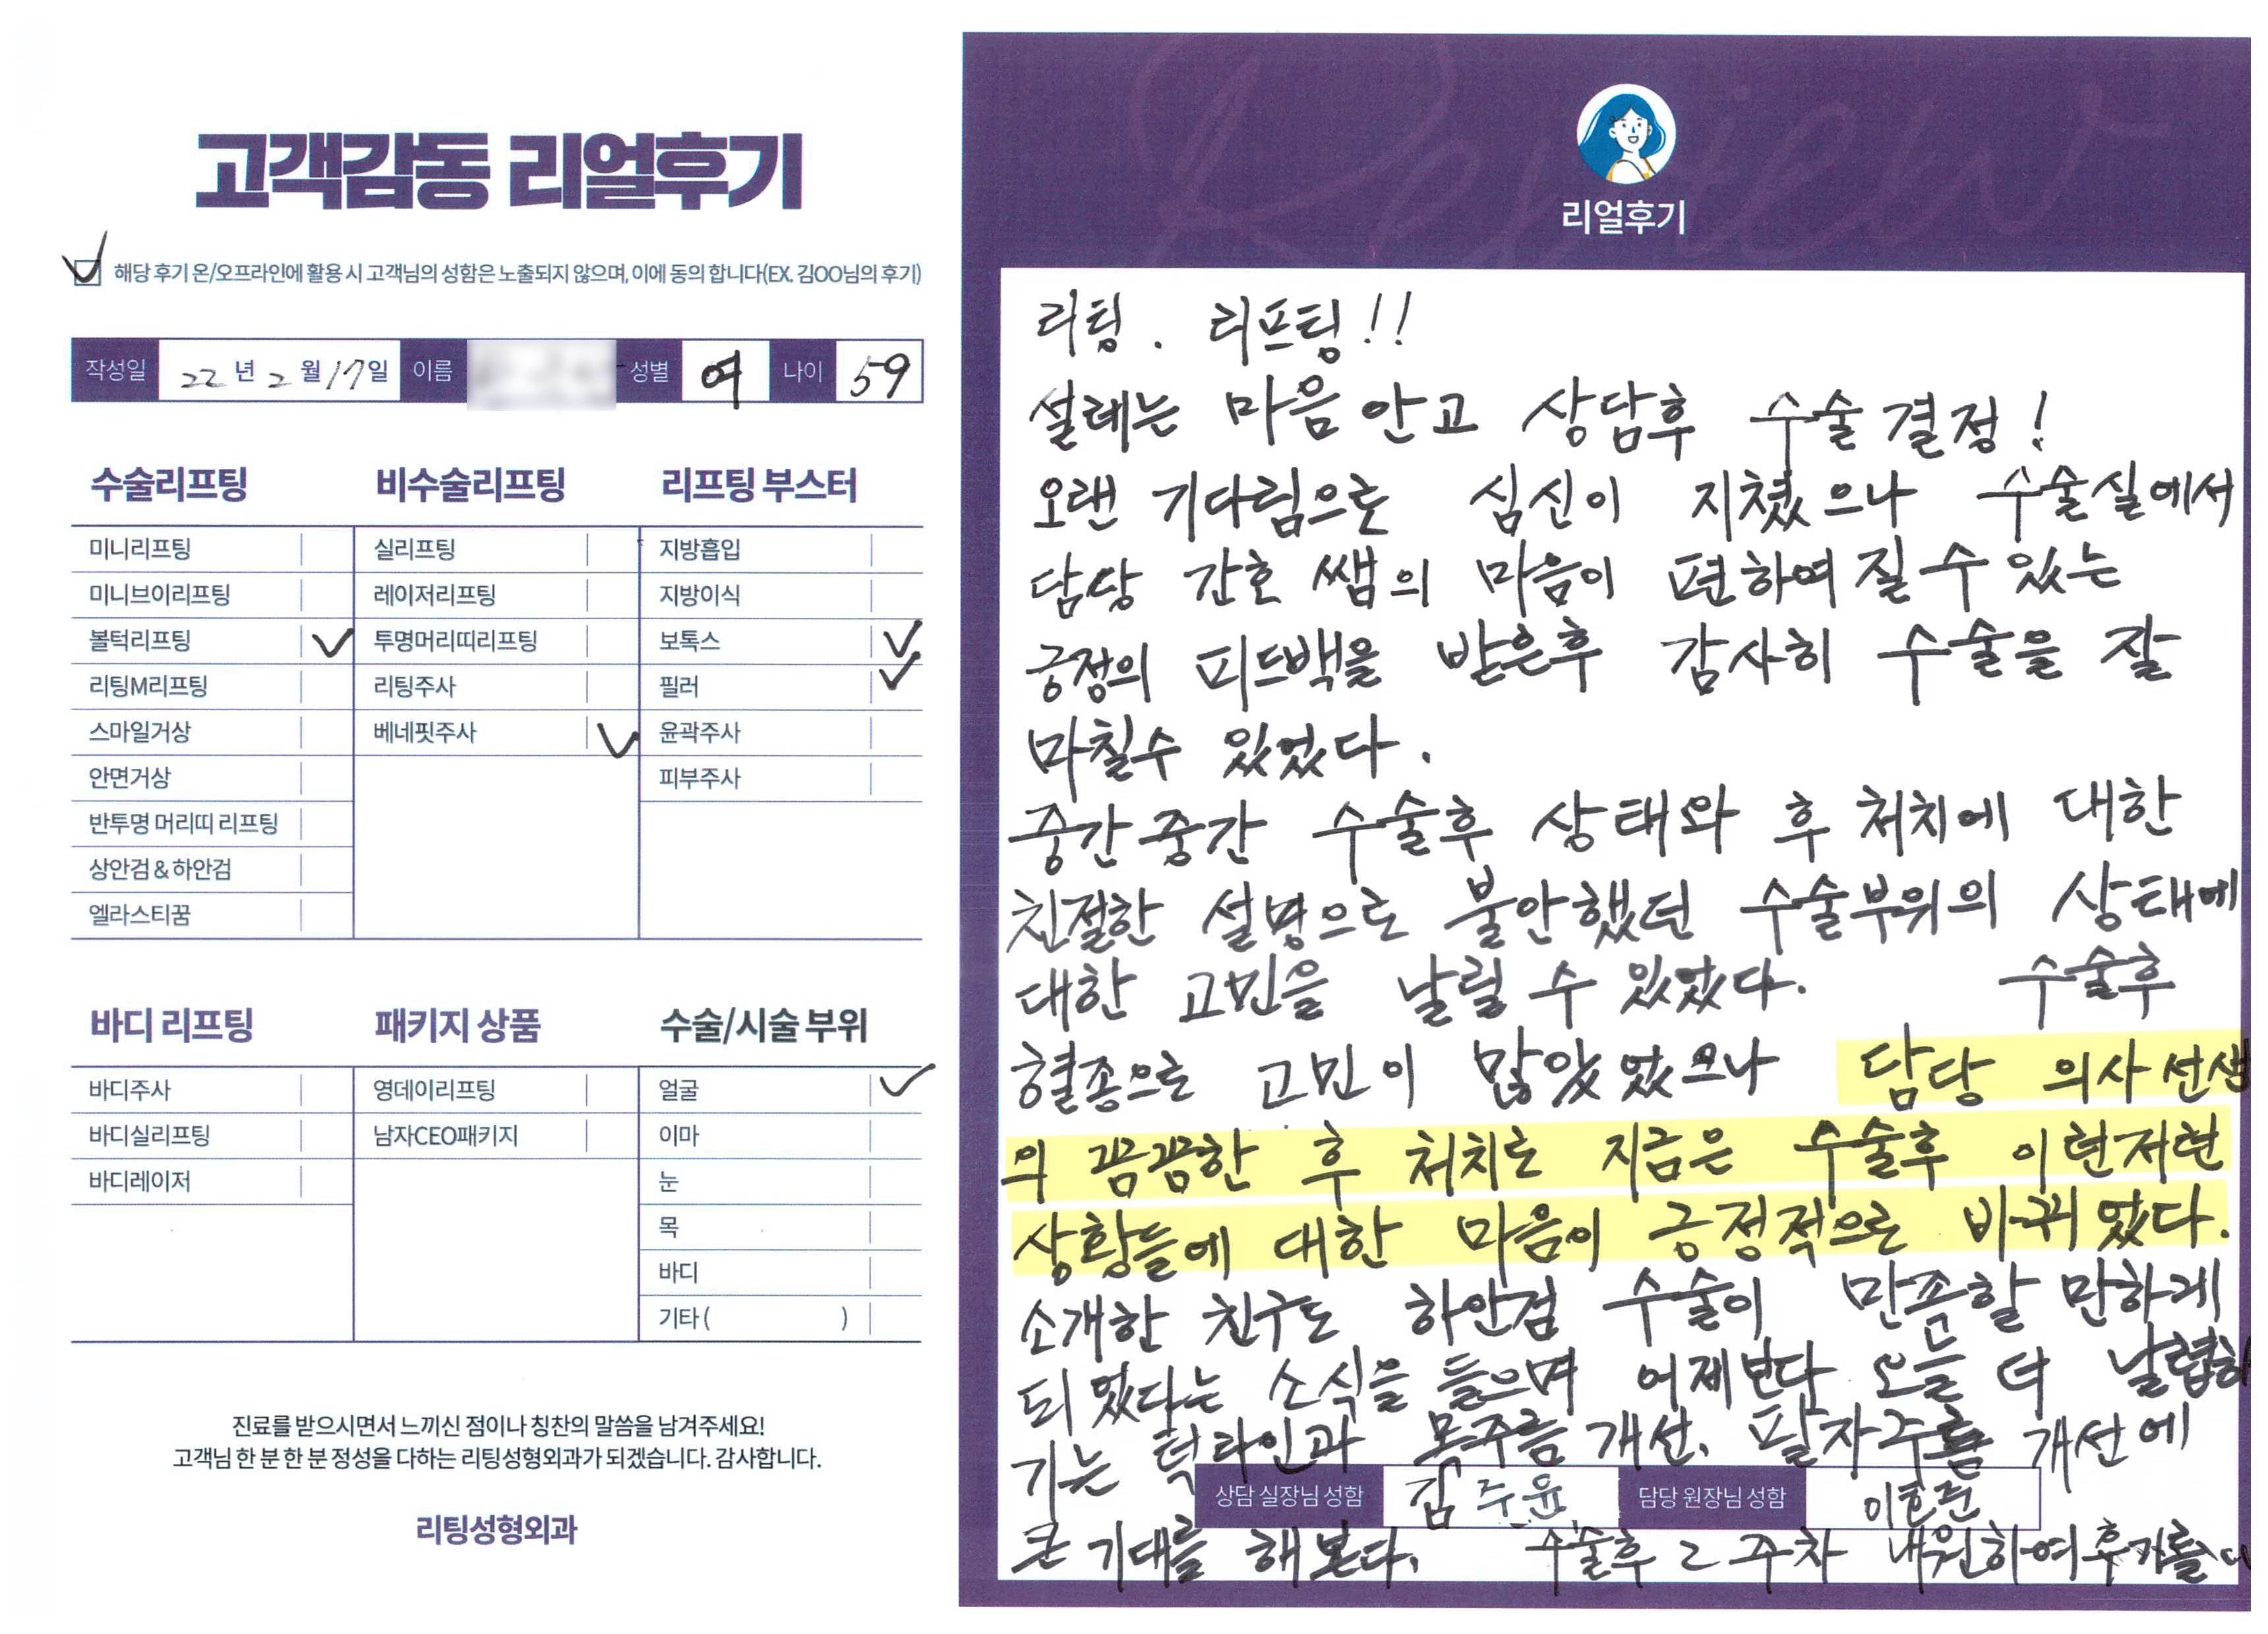 고객감동 리얼후기
해당 후기 온/오프라인에 활용 시 고객님의 성함은 노출되지 않으며, 이에 동의 합니다(EX. 김OO님의 후기)
작성일 22년 2월 17일 이름 성별 여 나이 59
수술리프팅 비수술리프팅 리프팅 부스터
미니리프팅 실리프팅 지방흡입
미니브이리프팅 레이저리프팅 지방이식
볼턱리프팅 투명머리띠리프팅 보톡스
리팅M리프팅 리팅주사 필러
스마일거상 베네핏주사 윤곽주사
안면거상 피부주사
반투명 머리띠 리프팅
상안검 & 하안검
엘라스티꿈
바디 리프팅 패키지 상품 수술/시술 부위
바디주사 영데이리프팅 얼굴
바디실리프팅 남자CEO패키지 이마
바디레이저 눈
목
바디
기타 ( )
진료를 받으시면서 느끼신 점이나 칭찬의 말씀을 남겨주세요!
고객님 한 분 한 분 정성을 다하는 리팅성형외과가 되겠습니다. 감사합니다.
리팅성형외과
Review
리얼후기
리팅. 리프팅!!
설레는 마음 안고 상담후 수술 결정!
오랜 기다림으로 심신이 지쳤으나 수술실에서
담당 간호 쌤의 마음이 편하여 질 수 있는
긍정의 피드백을 받은후 감사히 수술을 잘
마칠수 있었다.
중간중간 수술후 상태와 후 처치에 대한
친절한 설명으로 불안했던 수술부위의 상태에
대한 고민을 날릴 수 있었다. 수술후
혈종으로 고민이 많았었으나 담당 의사선생
의 꼼꼼한 후 처치로 지금은 수술후 이런저런
상황들에 대한 마음이 긍정적으로 바뀌었다.
소개한 친구도 하안검 수술이 만족할 만하게
되었다는 소식을 들으며 어제보다 오늘 더 날렵해
지는 턱라인과 목주름 개선, 팔자주름 개선에
상담 실장님 성함 김주윤 담당 원장님 성함
큰 기대를 해 본다. 수술후 2주차 내원하여 후기를